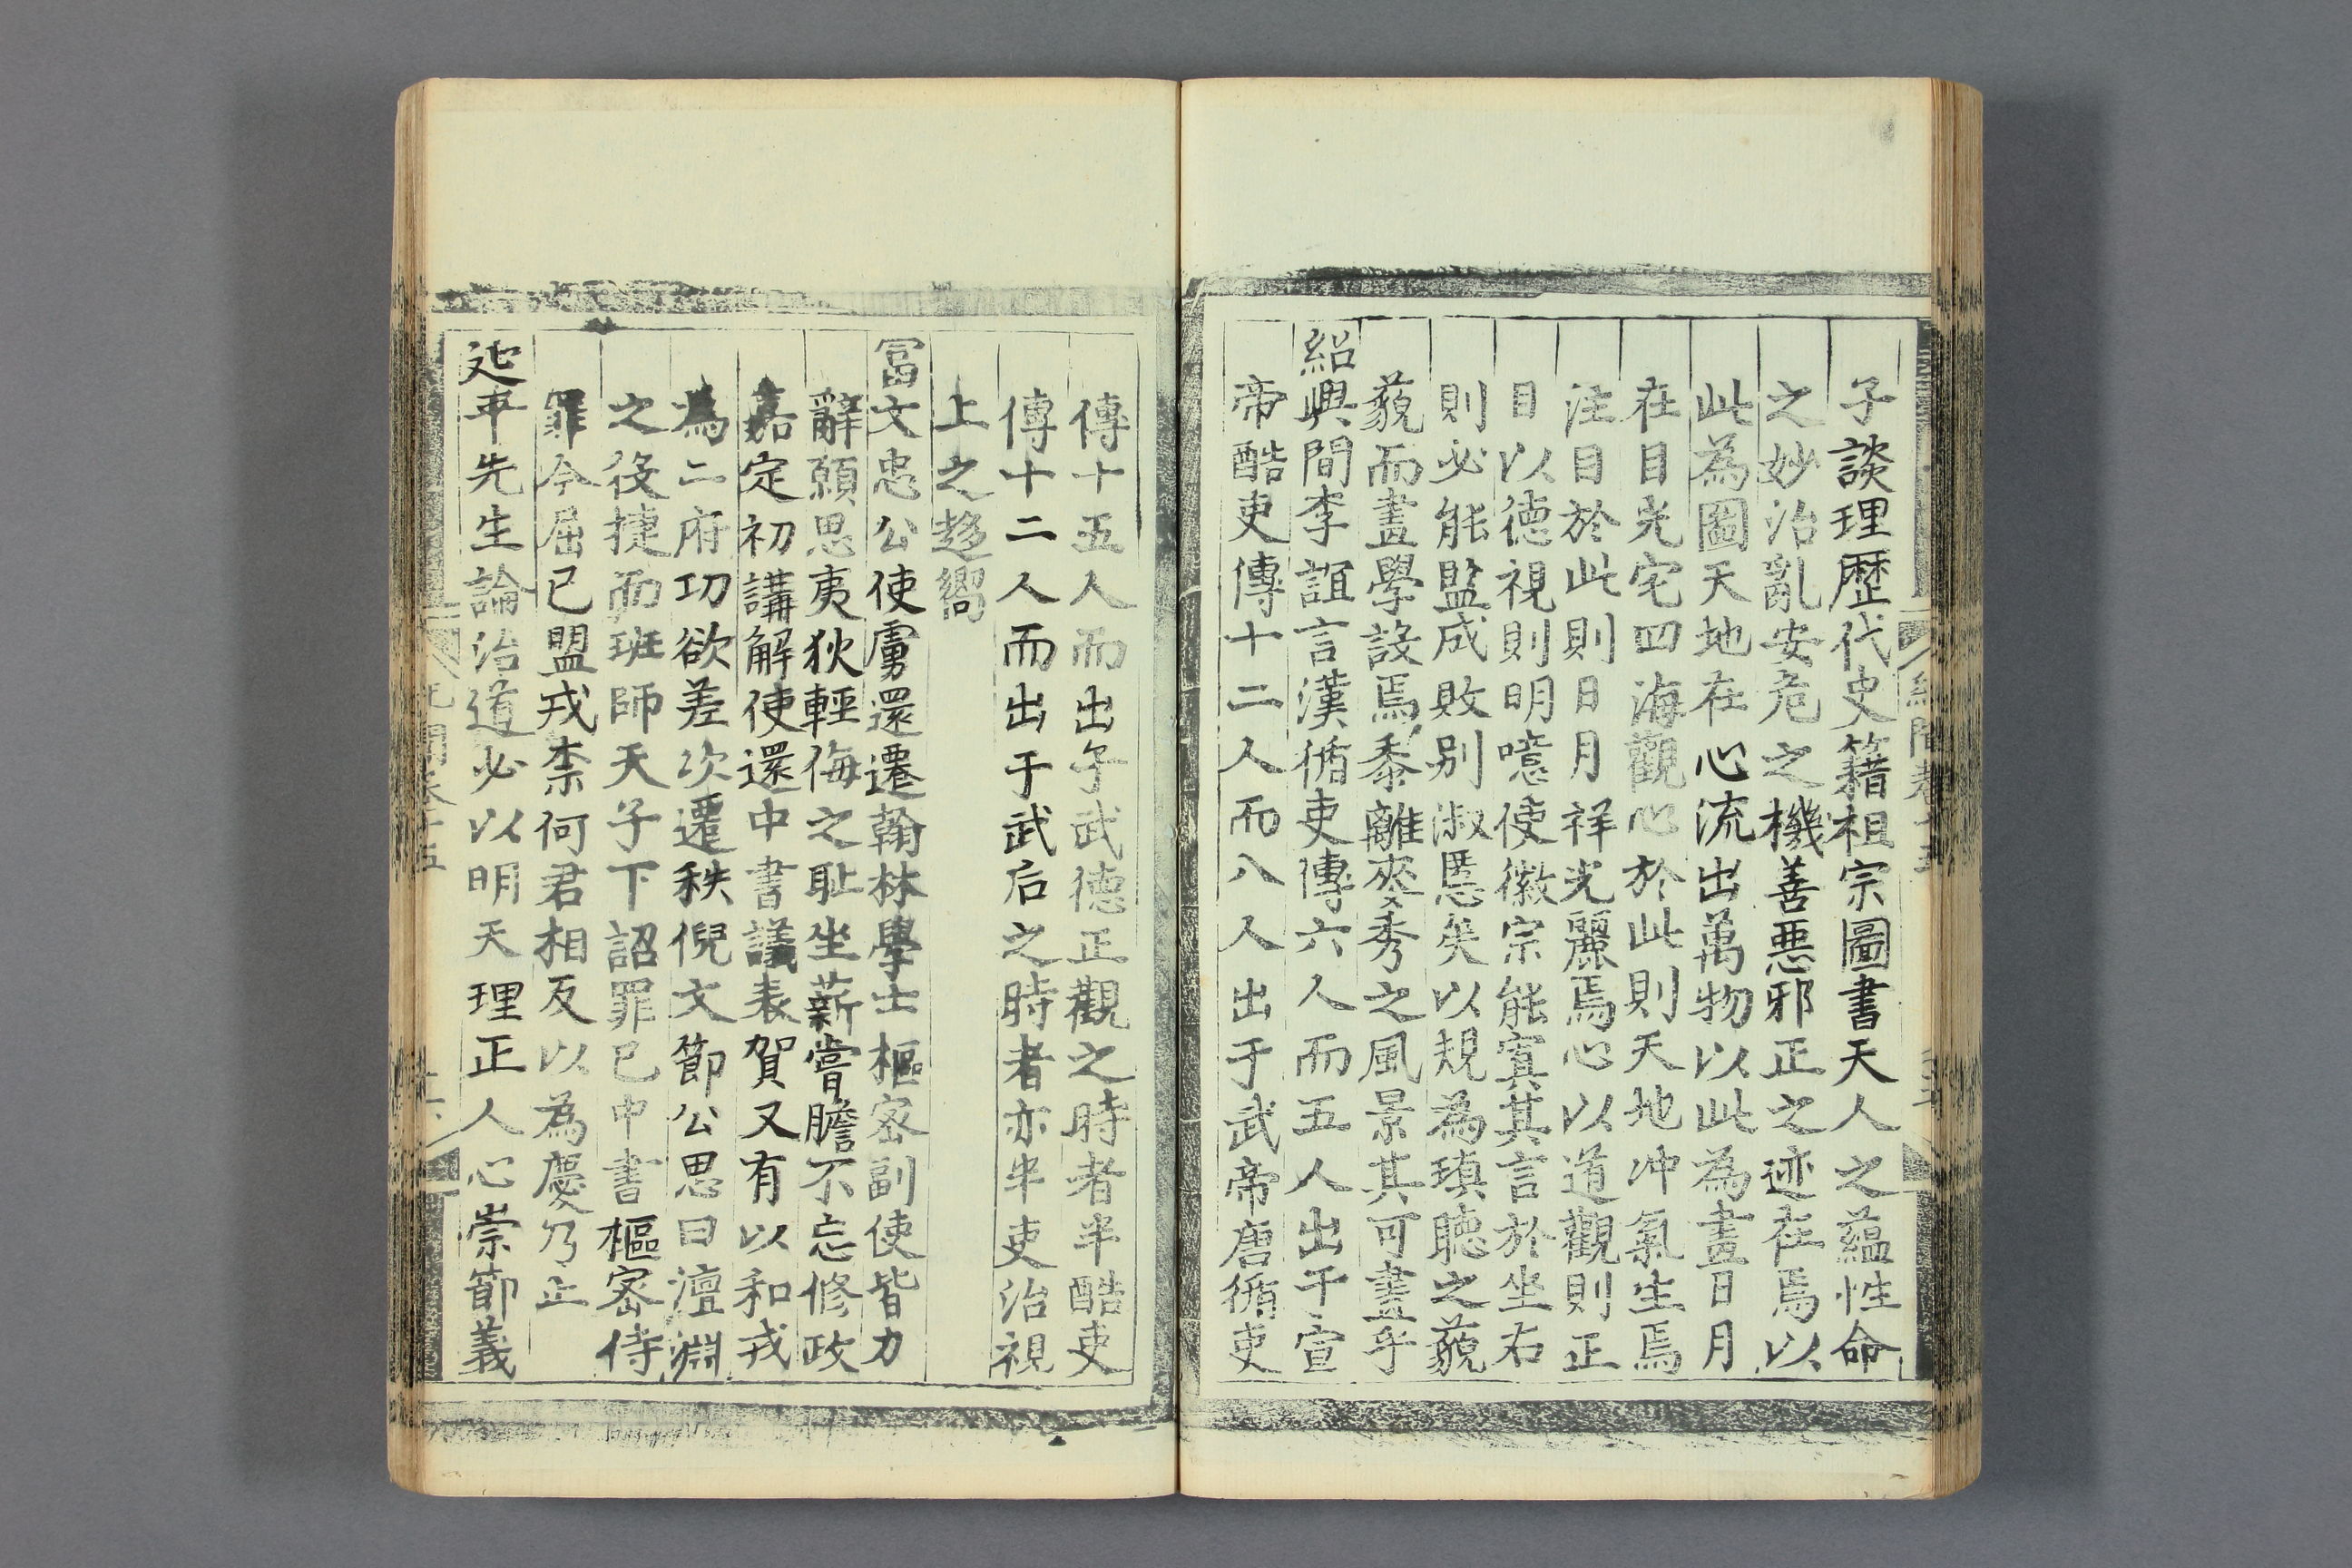 子談理歷代史籍祖宗圖書天人之蘊性命
之妙治亂安危之機善惡邪正之迹在焉以
此為圖天地在心流出萬物以此為畫日月
在目光宅四海觀心於此則天地沖氣生焉
注目於此則日月祥光麗焉心以道觀則正
目以德視則明噫使徽宗能寘其言於坐右
則必能監成敗別淑慝矣以規為瑱聽之藐
藐而畫學設焉黍離麥秀之風景其可畫乎
紹興間李誼言漢循吏傳六人而五人出于宣
帝酷吏傳十二人而八人出于武帝唐循吏
傳十五人而出乎武德正觀之時者半酷吏
傳十二人而出于武后之時者亦半吏治視
上之趍嚮
冨文忠公使虜還遷翰林學士樞密副使皆力
辭願思夷狄輕侮之耻坐薪嘗膽不忘修政
嘉定初講解使還中書議表賀又有以和戎
為二府功欲差次遷秩倪文節公思曰澶淵
之役捷而班師天子下詔罪已中書樞密待
罪今屈已盟戎柰何君相反以為慶乃止
延平先生論治道必以明天理正人心崇節義